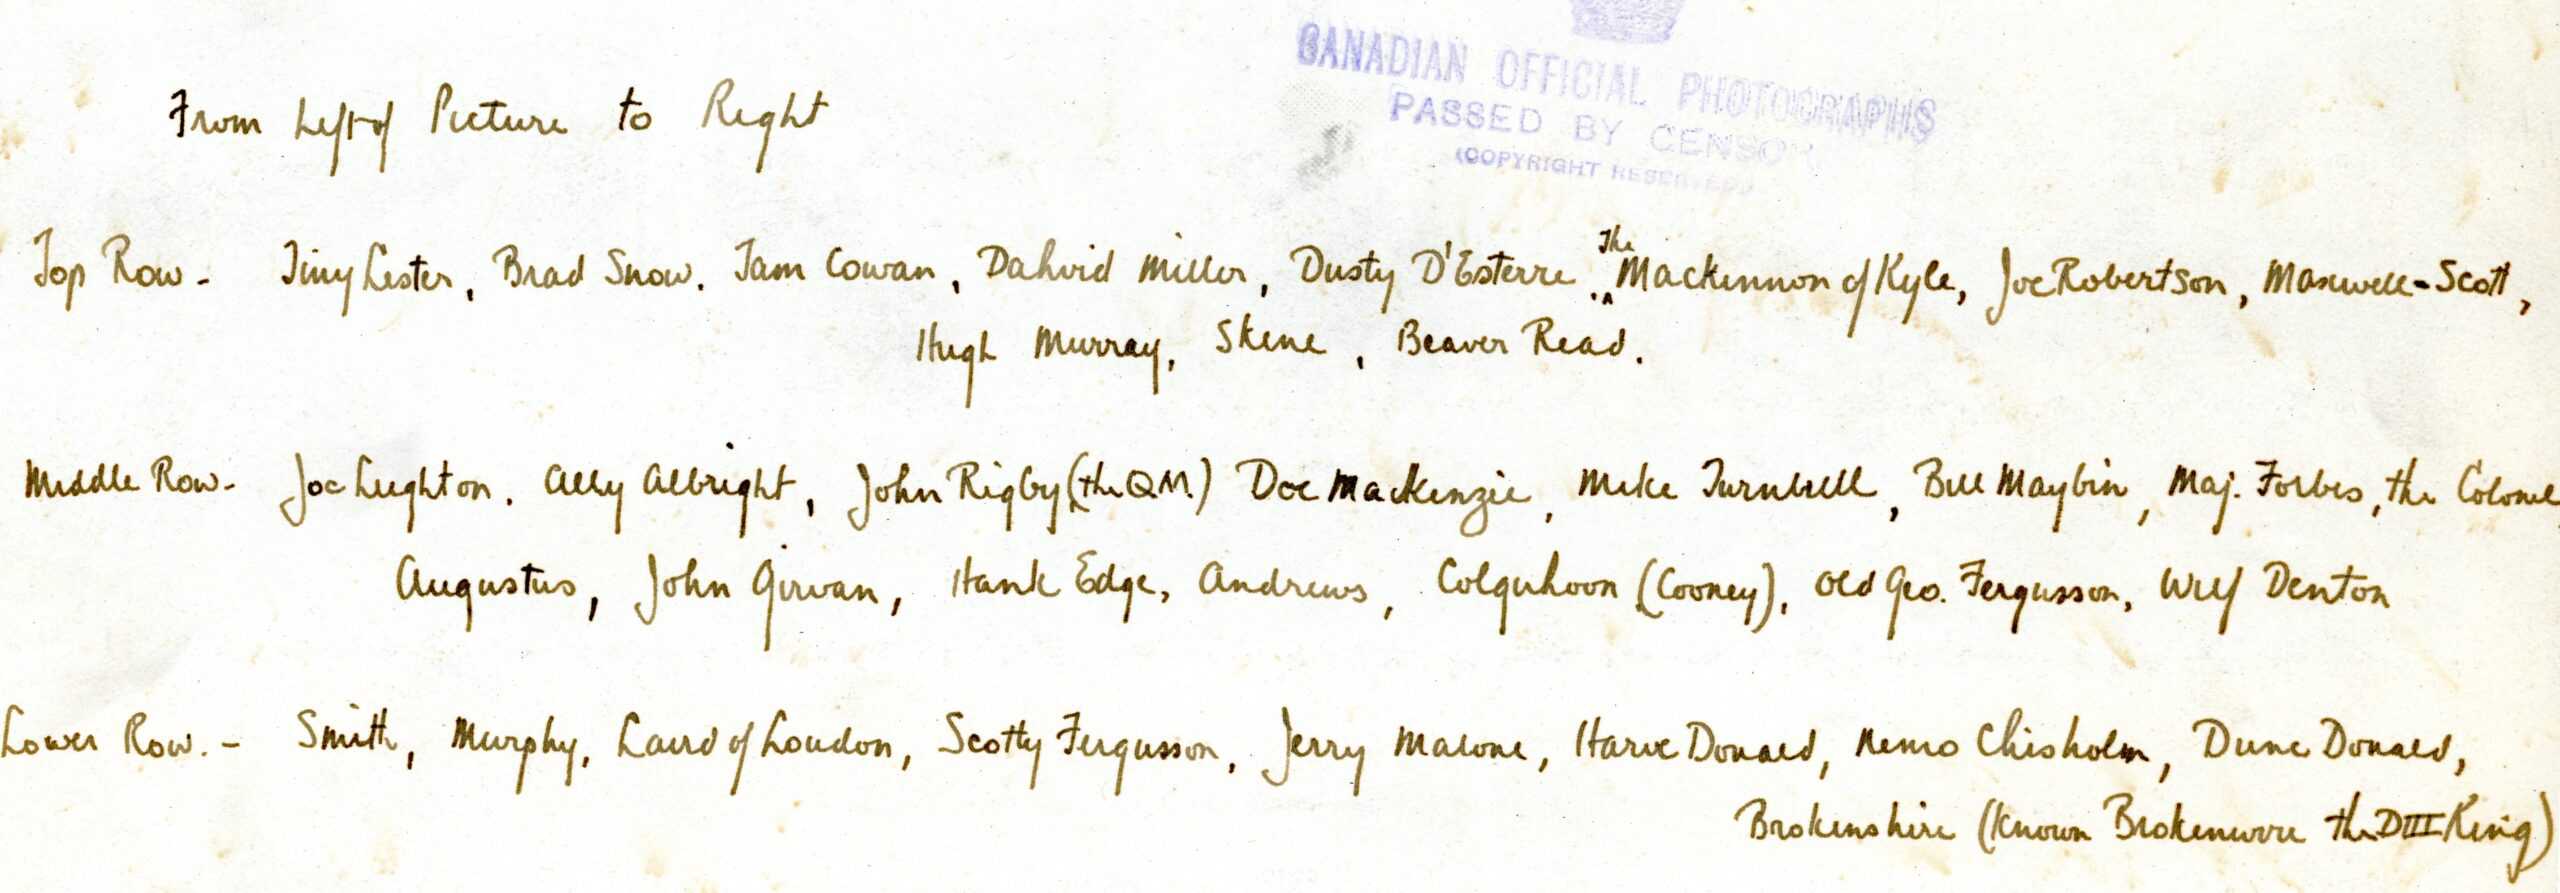 CANADIAN OFFICIAL PHOTOGRAPHS
PASSED BY CENSOR
(COPYRIGHT RESERVED)
From Left of Picture to Right
Top Row - Tiny Lester, Brad Snow. Tam Cowan, Dahvid Miller, Dusty D'Esterre, The Mackinnon of Kyle, Joe Robertson, Maxwell-Scott,
Hugh Murray, Skene, Beaver Read.
Middle Row - Joe Leighton. Ally Albright, John Rigby (the Q.M.) Doc Mackenzie, Mike Turnbull, Bill Maybin, Maj. Forbes, the Colonel,
Augustus, John Girvan, Hank Edge, Andrews, Colquhoon (Cooney), Old Geo. Fergusson, Wilf Denton
Lower Row. - Smith, Murphy, Laird of Loudon, Scotty Fergusson, Jerry Malone, Harve Donald, Nemo Chisholm, Dunc Donald,
Brokenshire (known Brokenwire the DIII King)